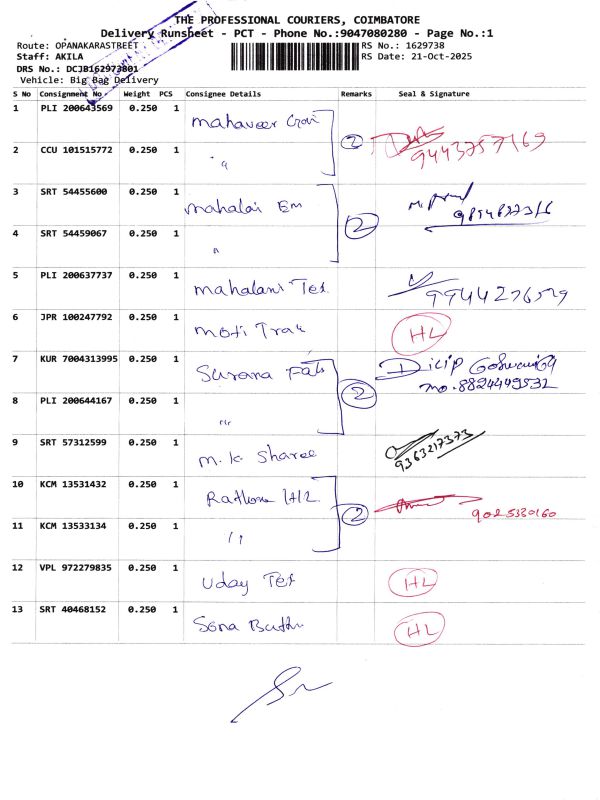 THE PROFESSIONAL COURIERS, COIMBATORE
Delivery Runsheet - PCT - Phone No.:9047080280 - Page No.:1
Route: OPANAKARASTREET
RS No.: 1629738
Staff: AKILA
RS Date: 21-Oct-2025
DRS No.: DCJB162973801
Vehicle: Big Bag Delivery
S No Consignment No Weight PCS Consignee Details Remarks Seal & Signature
1 PLI 200643569 0.250 1 mahaveer 2 9443757169
2 CCU 101515772 0.250 1 "
3 SRT 54455600 0.250 1 mahalai Em 2
4 SRT 54459067 0.250 1 "
5 PLI 200637737 0.250 1 mahalani Tex 9944276529
6 JPR 100247792 0.250 1 moti Trak HL
7 KUR 7004313995 0.250 1 Surana Fab 2 Dilip
mo.8824449532
8 PLI 200644167 0.250 1 "
9 SRT 57312599 0.250 1 m.k Sharee 9363217373
10 KCM 13531432 0.250 1 2 9025330160
11 KCM 13533134 0.250 1 "
12 VPL 972279835 0.250 1 Uday Tex HL
13 SRT 40468152 0.250 1 Sona HL